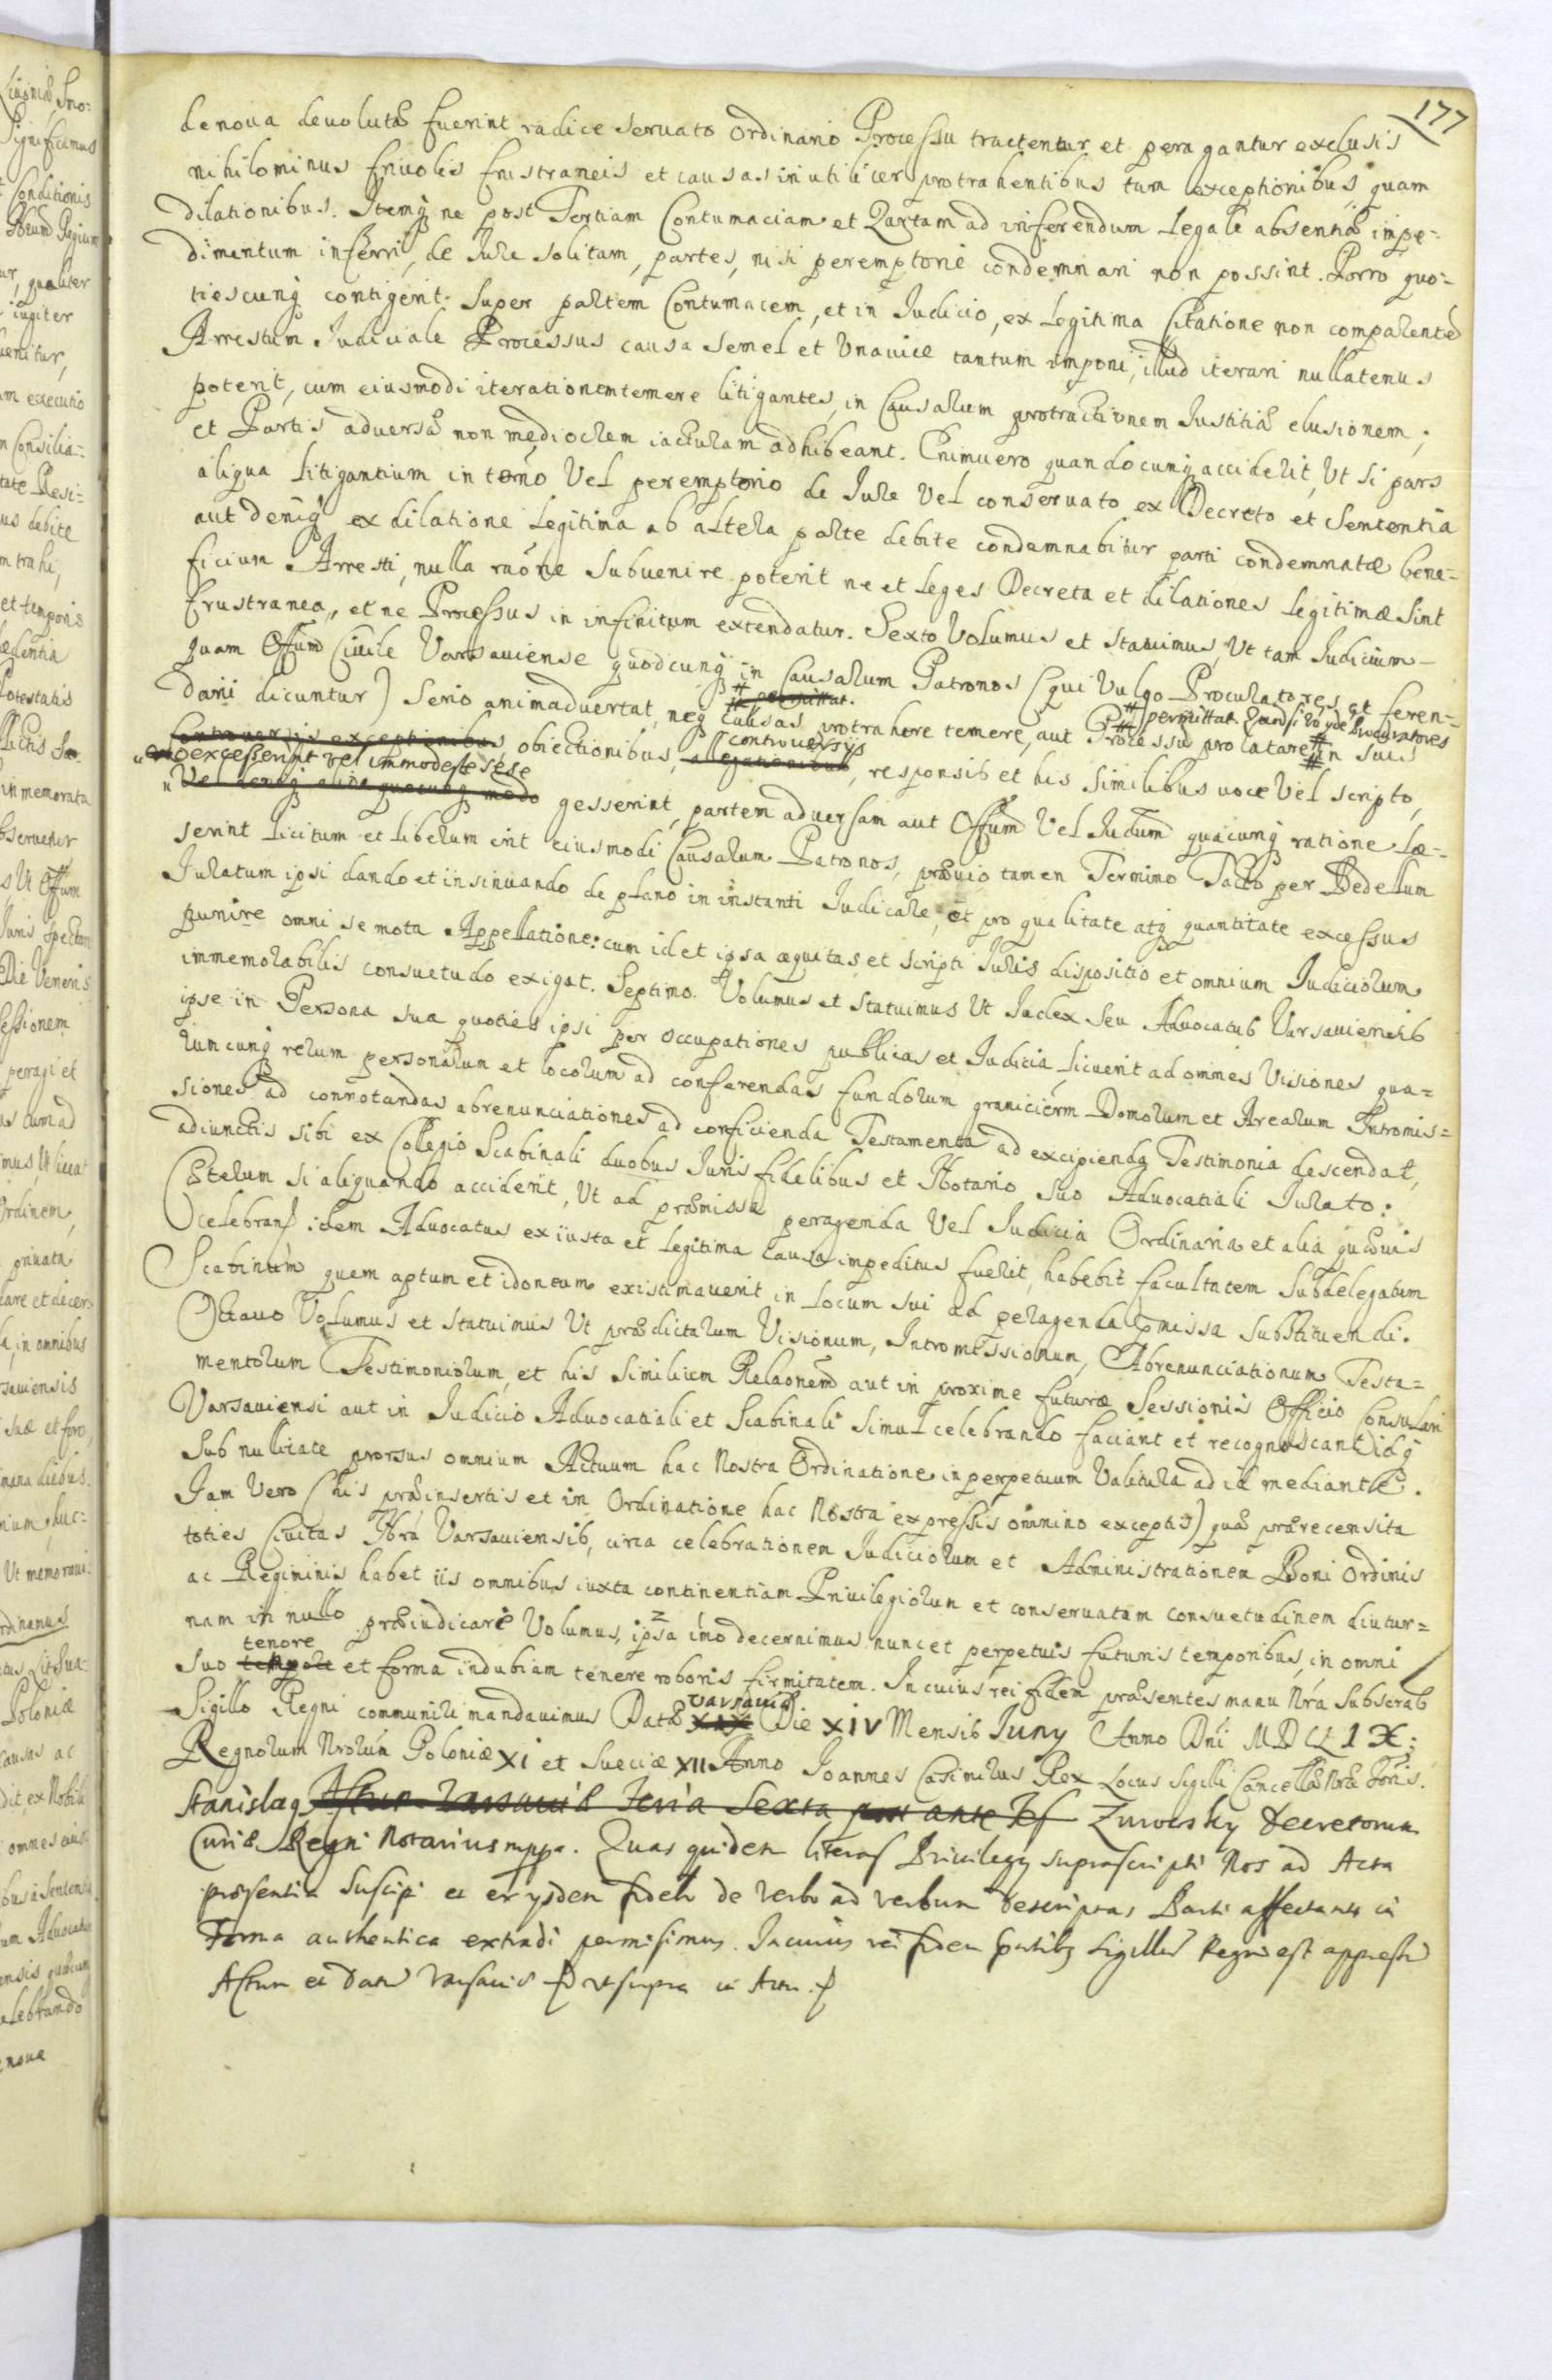 177
de noua deuolutæ fuerint radice seruato ordinario Processu tractentur et peragantur exclusis
nihilominus friuolis frustraneis et causas inutiliter protrahentibus tum exceptionibus quam
dilationibus. Itemq ne post Tertiam Contumaciam et Quartam ad inferendum Legale absentiæ impe=
dimentum inferri, de Iure solitam, partes, nisi peremptorie condemnari non possint. Porro quo=
tiescunq contigerit super partem Contumacem, et in Iudicio, ex legitima Citatione non comparentem
Arrestum Iudiciale Processus causa semel et Vnauice tantum imponi, illud iterari nullatenus
poterit, cum eiusmodi iterationem temere litigantes, in Causarum protractionem Iustitiæ elusionem,
et Partis aduersæ non mediocrem iacturam adhibeant. Enimuero quandocunq acciderit, Vt si pars
aliqua litigantium in termino Vel peremptorio de Iure Vel conseruato ex Decreto et Sententia
aut deniq ex dilatione legitima ab altera parte debite condemnabitur parti condemnatæ bene=
ficium Arresti, nulla raõne subuenire poterit ne et leges Decreta et dilationes legitimæ sint
frustranea, et ne Processus in infinitum extendatur. Sexto Volumus et statuimus, Vt tam Iudicium
quam Offum Ciuile Varsauiense quodcunq in Causarum Patronos (qui Vulgo Procuratores et feren=
darii dicuntur) serio animaduertat, neq Causas protrahere temere, aut Processu prolatare # in suis
# permittat. # permittat Quod si Procuratores
Controuersiis exceptionibus, obiectionibus, allegationibus controuersys, responsis et his similibus uoce Vel scripto,
excesserint vel immodeste sese
Vel deniq alio quocunq modo gesserint, partem aduersam aut Offum Vel Iudum quacunq ratione læ=
serint licitum et liberum erit eiusmodi Causarum Patronos, præuio tamen Termino Tacto per Bedellum
Iuratum ipsi dando et insinuando de plano in instanti Iudicare, et pro qualitate atq quantitate excessus
punire omni semota Appellatione: cum id et ipsa æquitas et scripti Iuris dispositio et omnium Iudiciorum
immemorabilis consuetudo exigat. Septimo. Volumus et statuimus Vt Iudex seu Aduocatus Varsauiensis
ipse in Persona sua quoties ipsi per occupationes publicas et Iudicia licuerit ad omnes Visiones qua=
rumcunq rerum personarum et locorum ad conferendas fundorum granicierm Domorum et Arearum Intromis=
siones ad connotandas abrenunciationes ad conficienda Testamenta ad excipienda Testimonia descendat,
adiunctis sibi ex Collegio Scabinali duobus Iuris fidelibus et Notario suo Aduocatiali Iurato:
Cæterum si aliquando acciderit, Vt ad præmissa peragenda Vel Iudicia Ordinaria et alia quæuis
celebran idem Aduocatus ex iusta et legitima causa impeditus fuerit, habebit facultatem Subdelegatum
Scabinum quem aptum et idoneum existimauerit in locum sui ad peragenda pmissa substituendi.
Octauo Volumus et statuimus Vt prædictarum Visionum, Intromissionum, Abrenunciationum Testa=
mentorum Testimoniorum, et his similium Relaonem aut in proxime futuræ Sessionis Officio Consulari
Varsauiensi aut in Iudicio Aduocatiali et Scabinali simul celebrando faciant et recognoscant idq
Sub nullitate prorsus omnium Actuum hac Nostra Ordinatione in perpetuum Valitura ad id mediante.
Iam Vero (his præinsertis et in Ordinatione hac Nostra expressis omnino exceptis) quæ prærecensita
toties Ciuitas Nra Varsauiensis, circa celebrationem Iudiciorum et Administrationem Boni Ordinis
ac Regiminis habet iis omnibus iuxta continentiam Priuilegiorum et conseruatam consuetudinem diutur=
nam in nullo præiudicare Volumus, ipsa imo decernimus nunc et perpetuis futuris temporibus, in omni
suo tempore tenore et forma indubiam tenere roboris firmitatem. In cuius rei fidem præsentes manu Nra Subscrab
Sigillo Regni communiri mandauimus Datæ XIX varsauiæ Die XIV Mensis Iuny Anno Dni MDCLIX:
Regnorum Nrorum Poloniæ XI et Sueciæ XII Anno Joannes Casimirus Rex Locus Sigilli Cancellæ
Stanislaq Actum Varsauiæ Feria Sexta post ante Fes Zurowsky Decretorum
Curiæ Regni Notarius mppa. Quas quidem literas Priuilegy suprascripti Nos ad Acta
præsentia suscipi et ex ysdem fideli de verbo ad verbum descriptas Parti affectanti in
Forma authentica extradi permisimus. In cuius rei fidem Sigillum Regni est appressum
Actum et Datum Varsauiæ vt supra in Actu